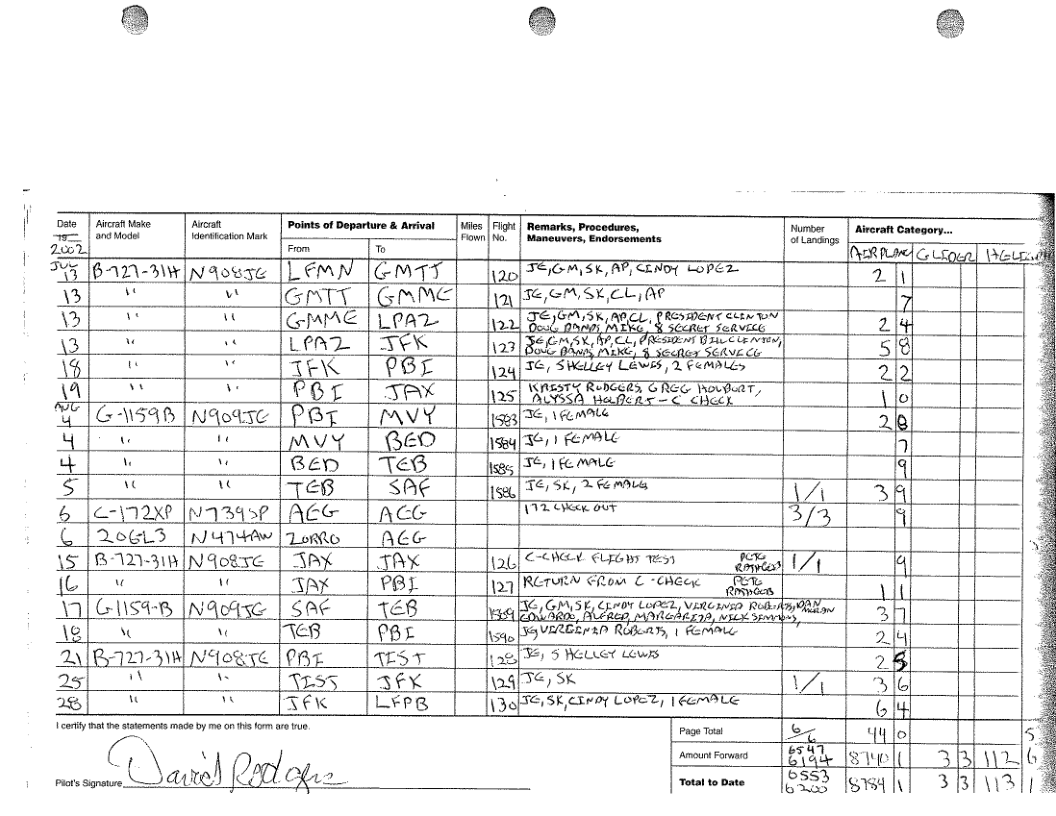 Date Aircraft Make and Model Aircraft Identification Mark Points of Departure & Arrival Miles Flown Flight No. Remarks, Procedures, Maneuvers, Endorsements Number of Landings Aircraft Category...
19 2002 From To AIRPLANE GLIDER
JUL 13 B-727-31H N908JE LFMN GMTT 120 JE, GM, SK, AP, CINDY LOPEZ 2 1
13 " " GMTT GMME 121 JE, GM, SK, CL, AP 7
13 " " GMME LPAZ 122 JE, GM, SK, AP, CL, PRESIDENT CLINTON
DOUG BANDS, MIKE, 8 SECRET SERVICE 2 4
13 " " LPAZ JFK 123 JE, GM, SK, AP, CL, PRESIDENT BILL CLINTON,
DOUG BANDS, MIKE, 8 SECRET SERVICE 5 8
18 " " JFK PBI 124 JE, SHELLEY LEWIS, 2 FEMALES 2 2
19 " " PBI JAX 125 KRISTY RODGERS, GREG HOLBERT,
ALYSSA HOLBERT - C CHECK 1 0
AUG 4 G-1159B N909JE PBI MVY 1583 JE, 1 FEMALE 2 8
4 " " MVY BED 1584 JE, 1 FEMALE 7
4 " " BED TEB 1585 JE, 1 FEMALE 9
5 " " TEB SAF 1586 JE, SK, 2 FEMALES 1/1 3 9
6 C-172XP N7395P AEG AEG 172 CHECK OUT 3/3 9
6 206L3 N474AW ZORRO AEG
15 B-727-31H N908JE JAX JAX 126 C-CHECK FLIGHT TEST PETE RATHGEB 1/1 9
16 " " JAX PBI 127 RETURN FROM C-CHECK PETE RATHGEB 1 1
17 G1159-B N909JE SAF TEB 1589 JE, GM, SK, CINDY LOPEZ, VIRGINIA ROBERTS, DAN MORAN
EDWARDO, ALFRED, MARGARITA, NICK SIMMONS, 3 7
18 " " TEB PBI 1590 JE, VIRGINIA ROBERTS, 1 FEMALE 2 4
21 B-727-31H N908JE PBI TIST 128 JE, SHELLEY LEWIS 2 5
25 " " TIST JFK 129 JE, SK 1/1 3 6
28 " " JFK LFPB 130 JE, SK, CINDY LOPEZ, 1 FEMALE 6 4
I certify that the statements made by me on this form are true. Page Total 6/6 44 0 5
Amount Forward 6547 6194 8740 1 3 3 112 6
Pilot's Signature David Rodgers Total to Date 6553 6200 8784 1 3 3 113 1